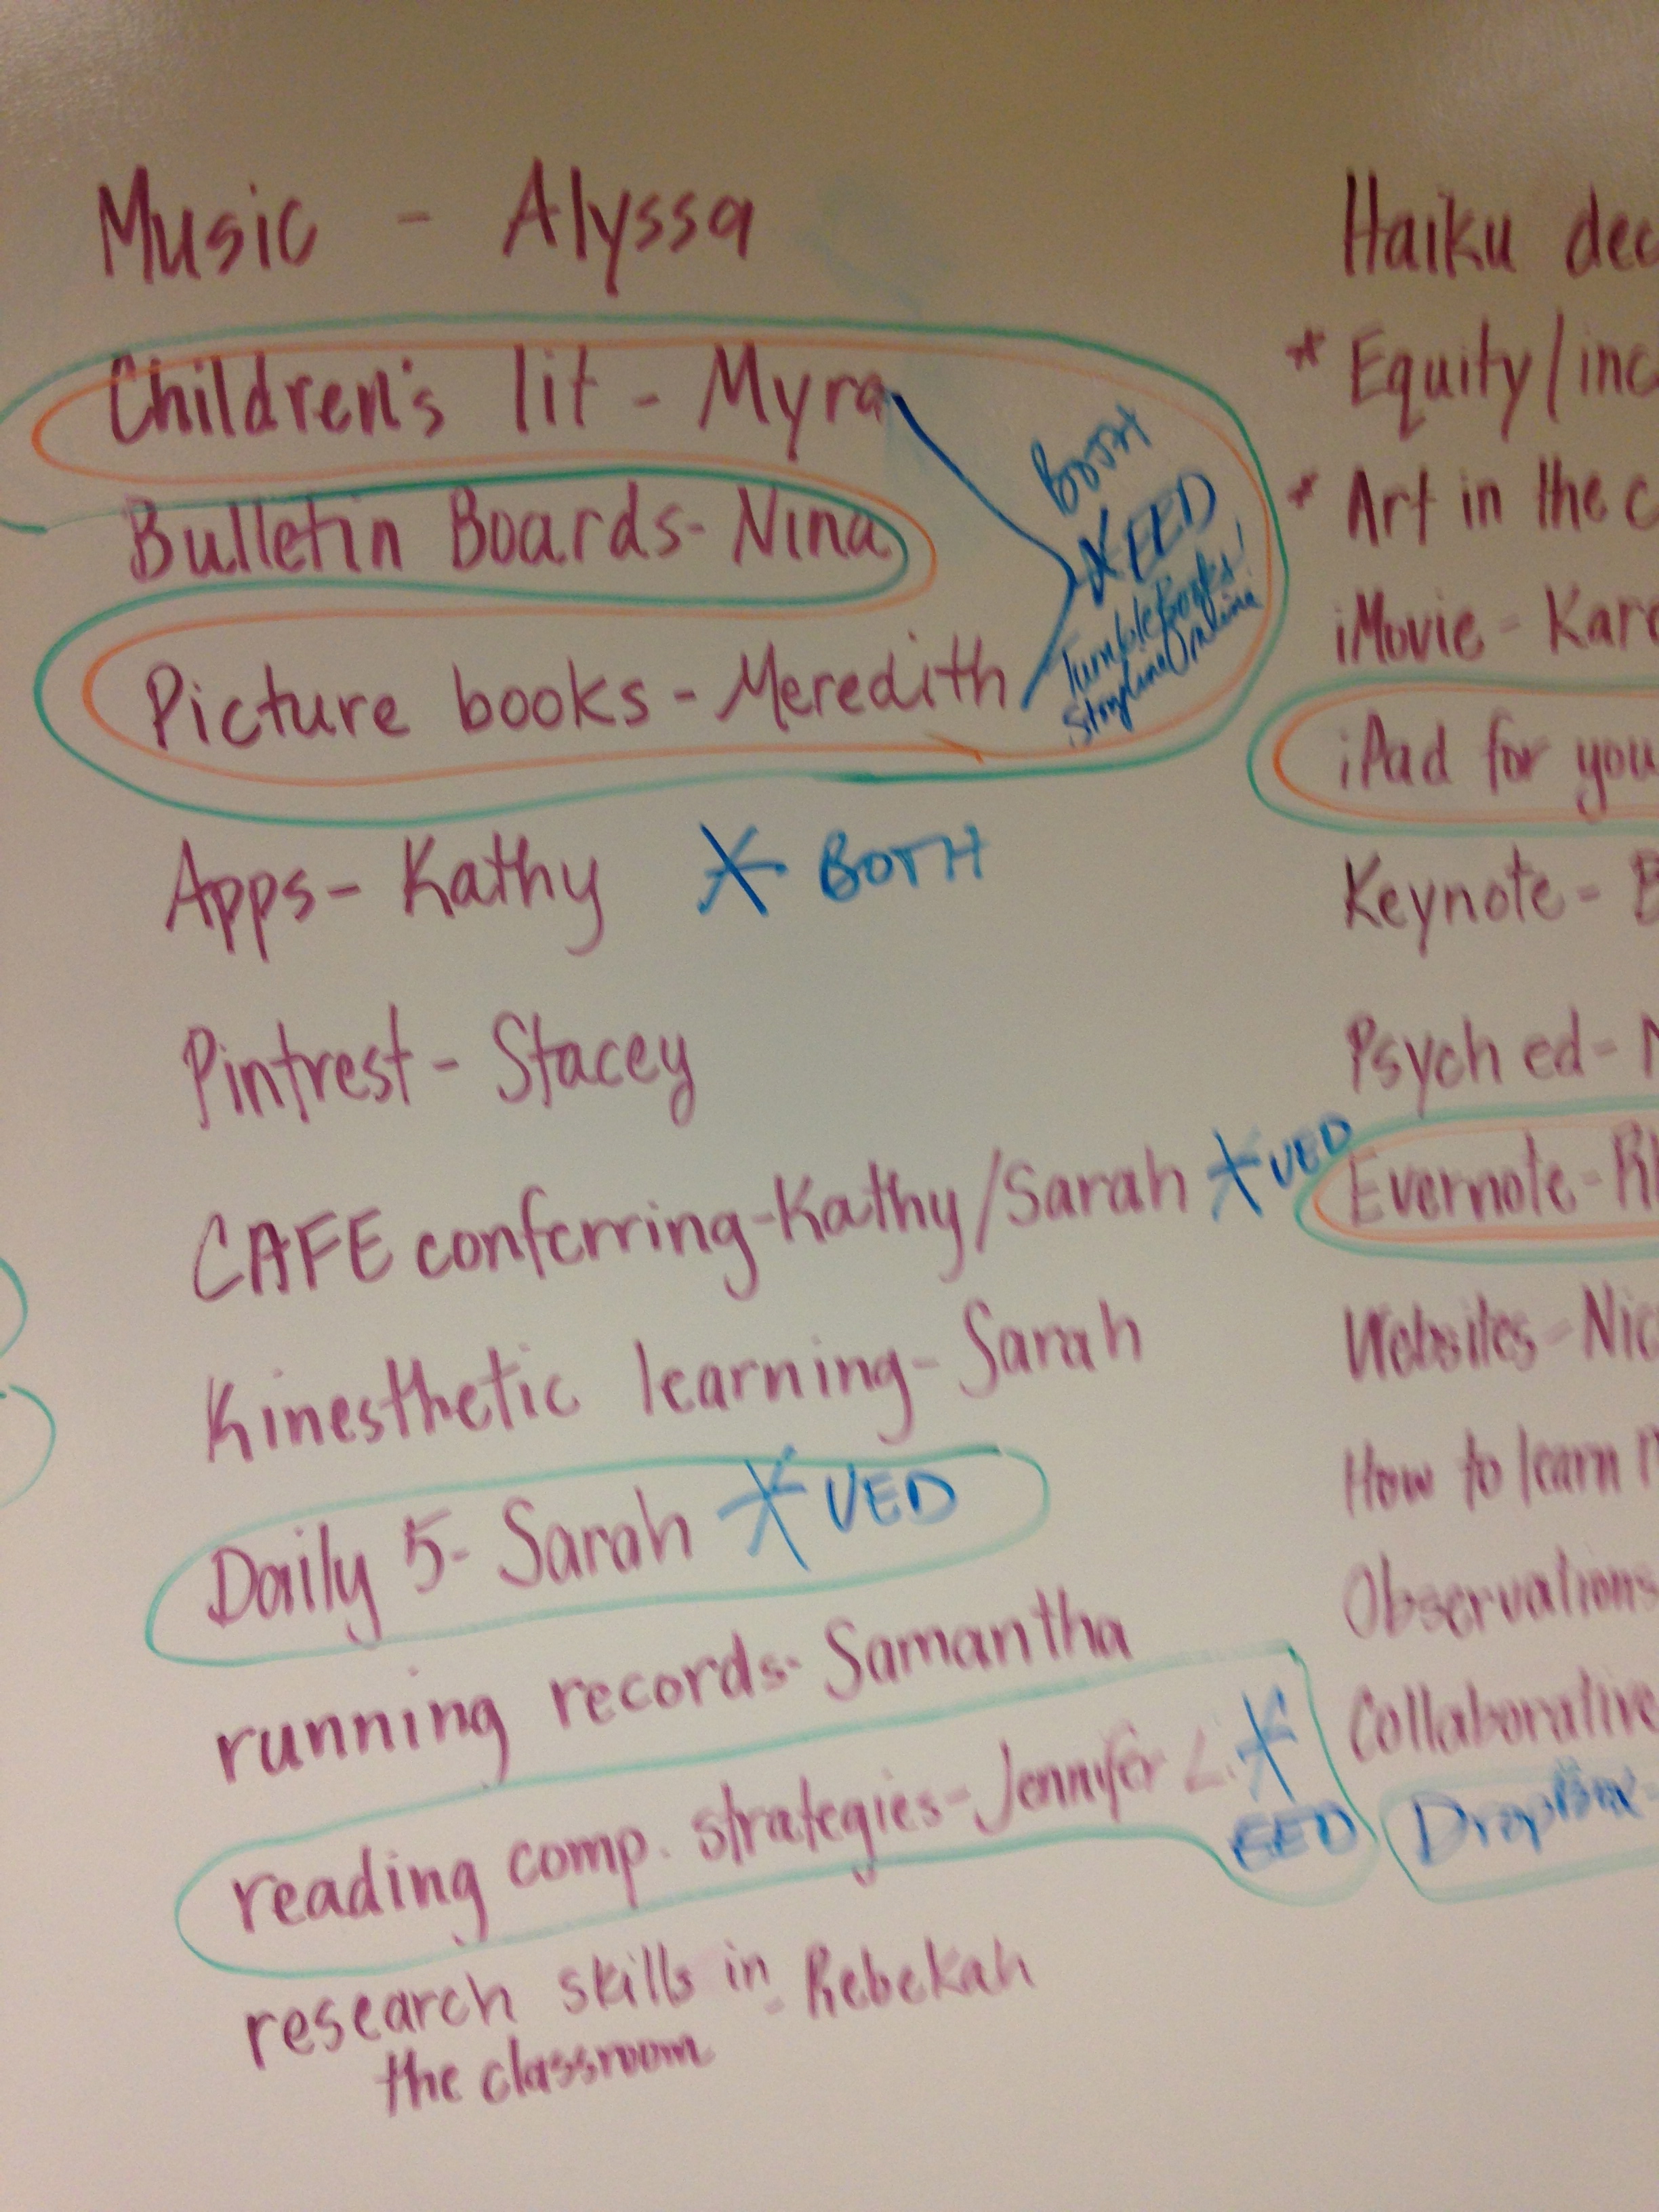 Music - Alyssa
Children's lit - Myra
Bulletin Boards- Nina
Picture books - Meredith
BOTH
EED
TumbleBooks!
StorylineOnline
Apps- Kathy * BOTH
Pintrest - Stacey
CAFE conferring-Kathy/Sarah * UED
Kinesthetic learning- Sarah
Daily 5- Sarah * UED
running records- Samantha
reading comp. strategies-Jennifer L. *
EED
research skills in - Rebekah
the classroom
Haiku dec
* Equity/inc
* Art in the c
iMovie - Kar
iPad for you
Keynote -
Psych ed -
Evernote -
Websites - Nic
How to learn
Observations
Collaborative
DropBox -